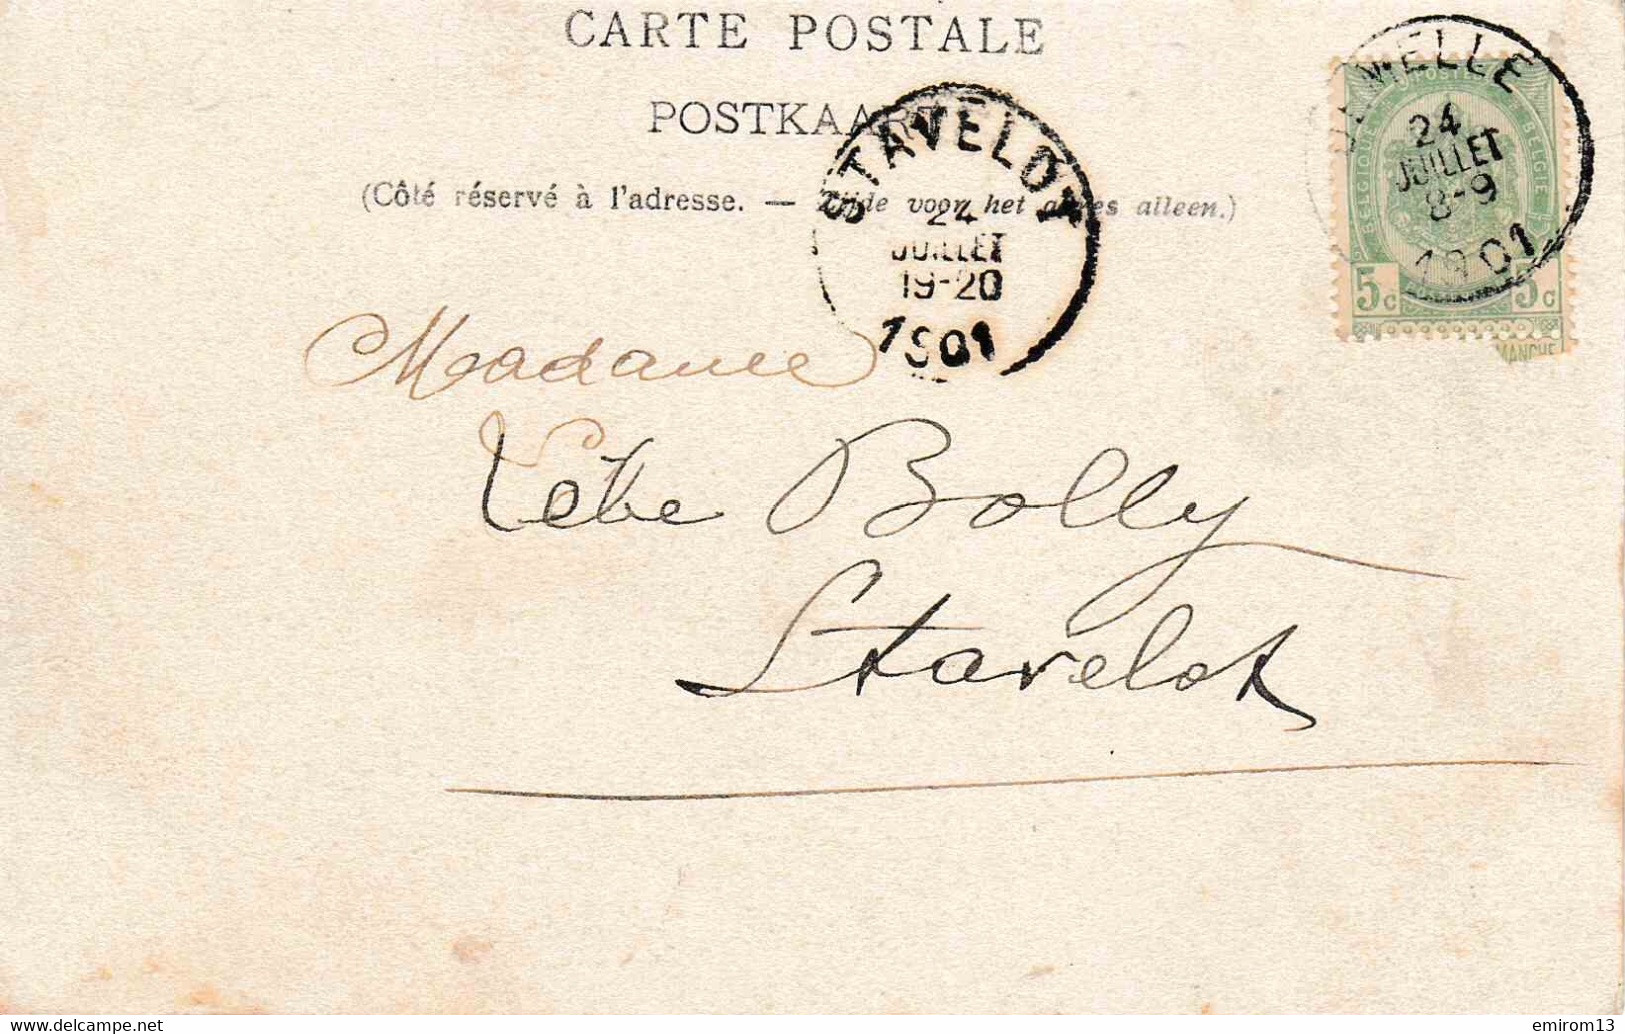 CARTE POSTALE
POSTKAART
(Côté réservé à l'adresse. — Zijde voor het adres alleen.)
STAVELOT
24
JUILLET
19-20
1901
MELLE
24
JUILLET
8-9
1901
POSTE
BELGIQUE
BELGIË
5c 5c
MANCHE
Madame
Bolly
Stavelot
www.delcampe.net
emirom13